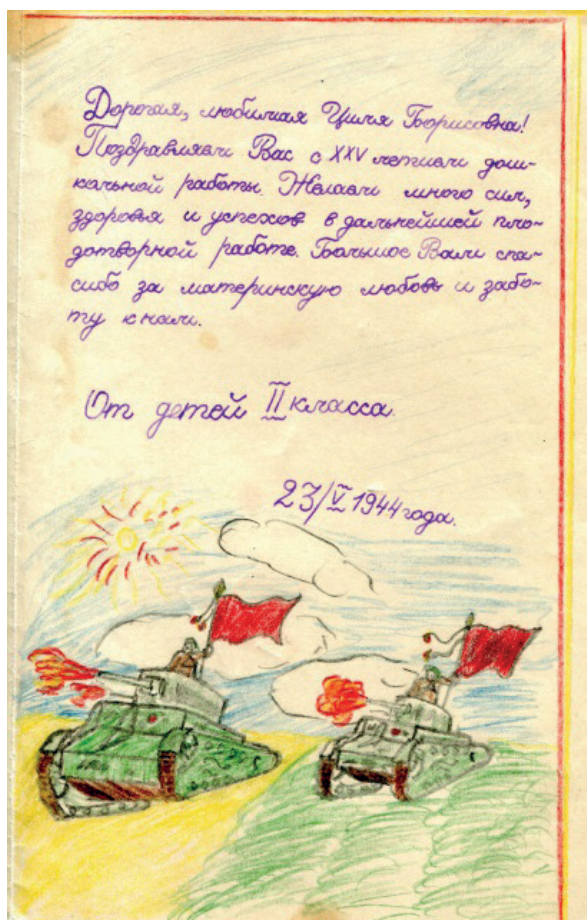 Дорогая, любимая Циля Борисовна!
Поздравляем Вас с XXV летием дош-
кольной работы. Желаем много сил,
здоровья и успехов в дальнейшей пло-
дотворной работе. Большое Вам спа-
сибо за материнскую любовь и забо-
ту к нам.
От детей II класса.
23/V 1944 года.